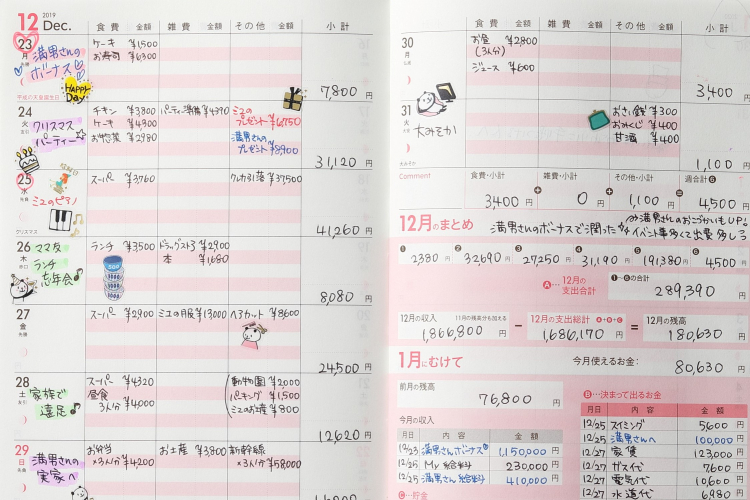 12 2019 Dec.
食費 金額 雑費 金額 その他 金額 小計
23 月 満男さんのボーナス
ケーキ ¥1,500
お寿司 ¥6,300
HAPPY Day
7,800円
24 火 クリスマスパーティー☆
チキン ¥3800 パーティ準備 ¥4,390 ミエのプレゼント ¥6,750
ケーキ ¥4,300
お惣菜 ¥2,980 満男さんプレゼント ¥8,900
31,120円
25 水 ミエのピアノ
スーパー ¥3,760 クルカ引落 ¥37,500
クリスマス
41,260円
26 木 ママ友ランチ忘年会
ランチ ¥3,500 ドラッグスト3 ¥2,900
本 ¥1,680
500
8,080円
27 金
スーパー ¥2,900 ミエの服 ¥13,000 ヘアカット ¥8,600
24,500円
28 土 家族で遠足
スーパー ¥4,320 動物園 ¥2,000
昼食 3人分 ¥4,000 パーキング ¥1,500
ミエのお産 ¥800
12,620円
29 日 満男さんの実家へ
お弁当 ×3人分 ¥4,200 お土産 ¥3,800 新幹線 ×3人分 ¥58,000
食費 金額 雑費 金額 その他 金額 小計
30 月
お昼 (3人分) ¥2,800
ジュース ¥600
3,400円
31 火 大みそか
おさい銭 ¥300
おみくじ ¥400
甘酒 ¥400
大みそか
1,100円
Comment
食費・小計 雑費・小計 その他・小計 週合計❻
3,400円 + 0円 + 1,100円 = 4,500円
12月のまとめ
満男さんのボーナスで潤った
満男さんのおこづかいもUP!
イベント事多くて出費多し
❶2380円 ❷32690円 ❸27250円 ❹31,190円 ❺191,380円 ❻4,500円
Ⓐ…12月の支出合計
❶〜❻の合計
289,390円
12月の収入 11月の残高分も加える
1,866,800円
−
12月の支出総計 Ⓐ+Ⓑ+Ⓒ
1,686,170円
=
12月の残高
180,630円
1月にむけて
今月使えるお金: 80,630円
前月の残高
76,800円
今月の収入
月日 内容 金額
12/23 満男さんボーナス 1,150,000円
12/25 My 給料 230,000円
12/25 満男さん給料 410,000円
Ⓒ…貯金
Ⓑ…決まって出るお金
月日 内容 金額
12/25 スイミング 5600円
12/25 満男さんへ 100,000円
12/27 家賃 123,000円
12/27 ガス代 7,600円
12/27 電気代 10,600円
12/27 水道代 6,980円